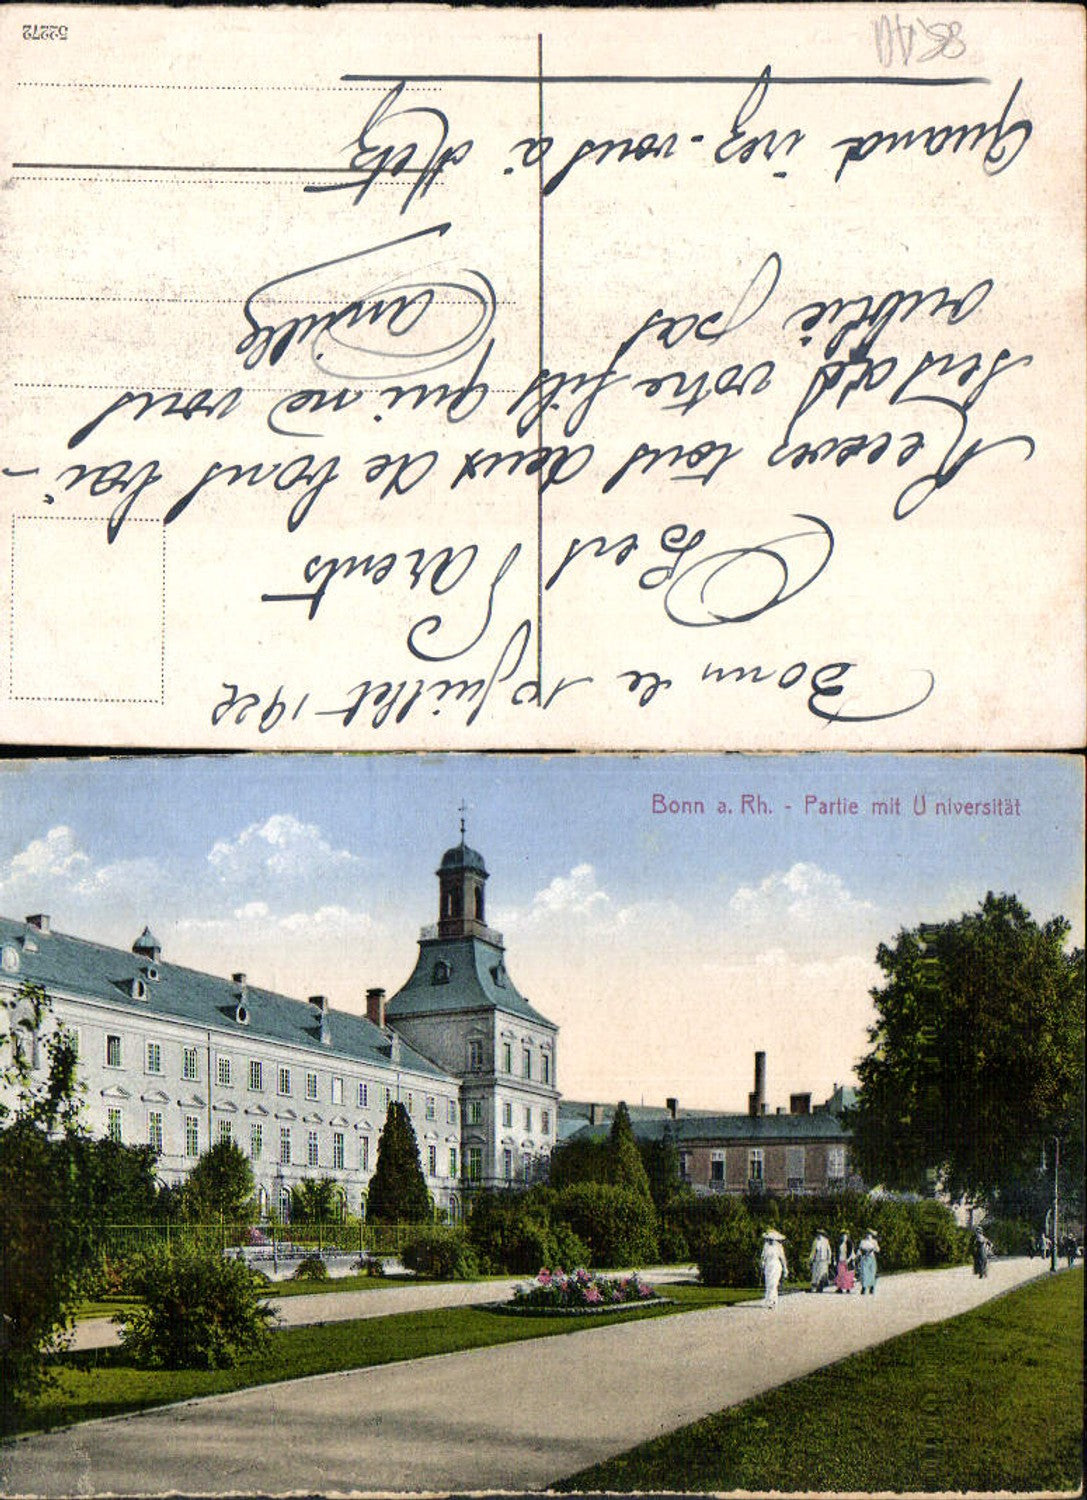 Bonn le 10 Juillet 1922
Chers Parents
Recevez tous deux de bons bai-
sers de votre fils qui ne vous
oublie pas
Camille
Quand irez-vous à Metz
52272
Bonn a. Rh. - Partie mit U niversität